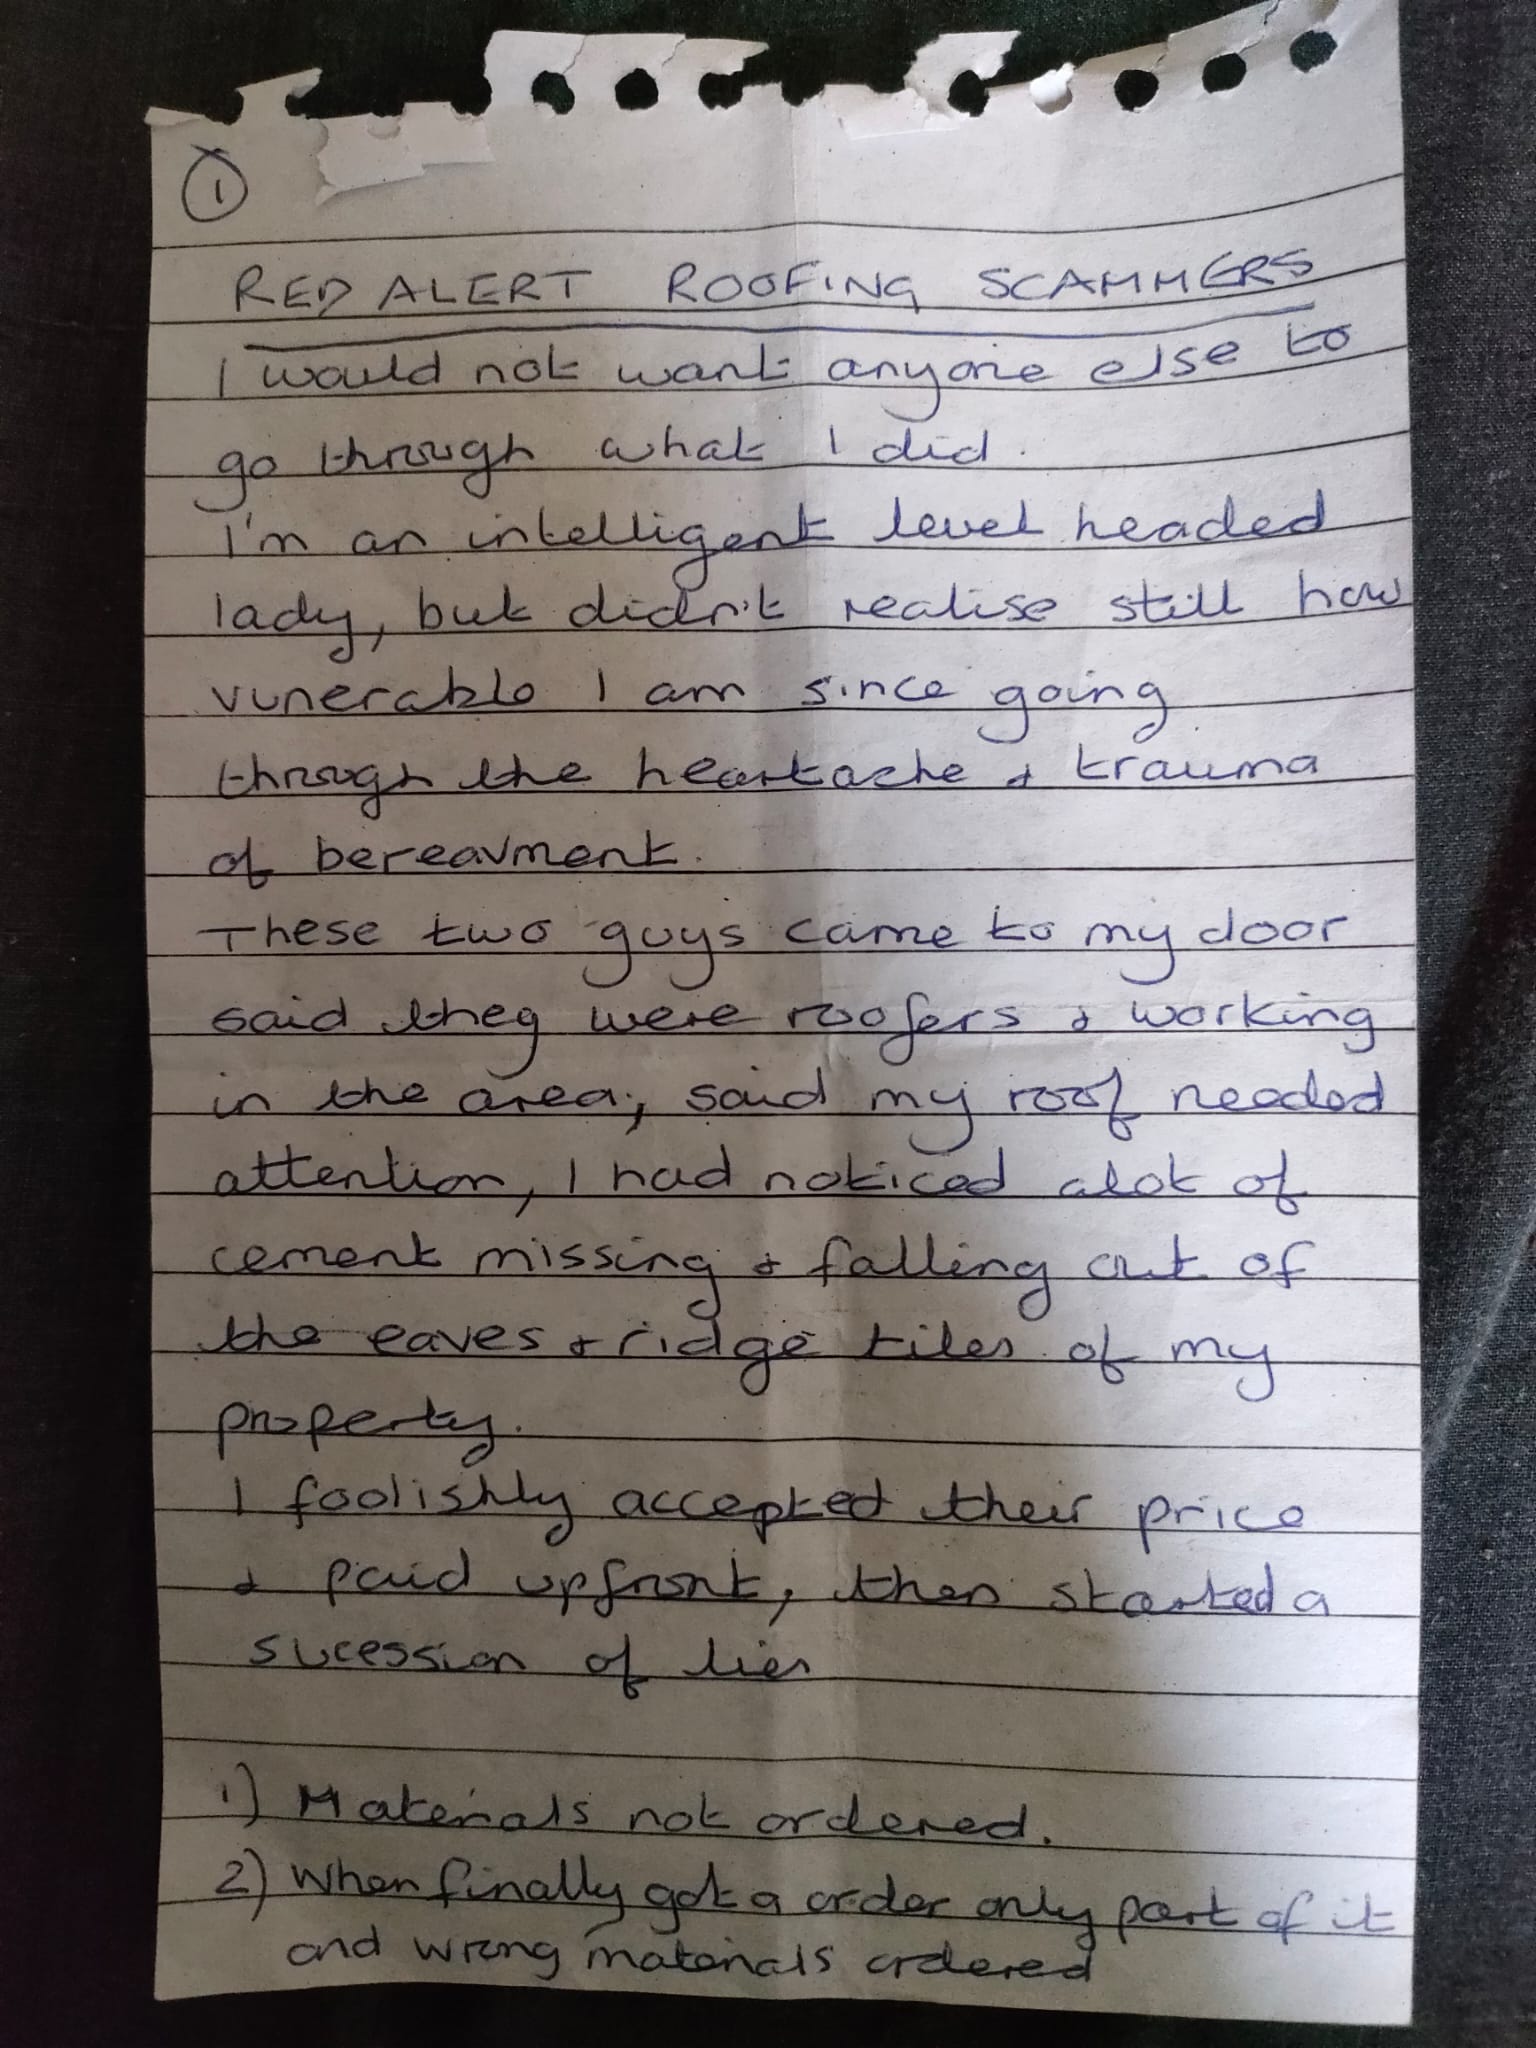 1
RED ALERT ROOFING SCAMMERS
I would not want anyone else to
go through what I did.
I'm an intelligent level headed
lady, but didn't realise still how
vunerable I am since going
through the heartache & trauma
of bereavment.
These two guys came to my door
said they were roofers & working
in the area, said my roof needed
attention, I had noticed alot of
cement missing & falling out of
the eaves & ridge tiles of my
property.
I foolishly accepted their price
& paid upfront, then started a
sucession of lies
1) Materials not ordered.
2) When finally got a order only part of it
and wrong materials ordered